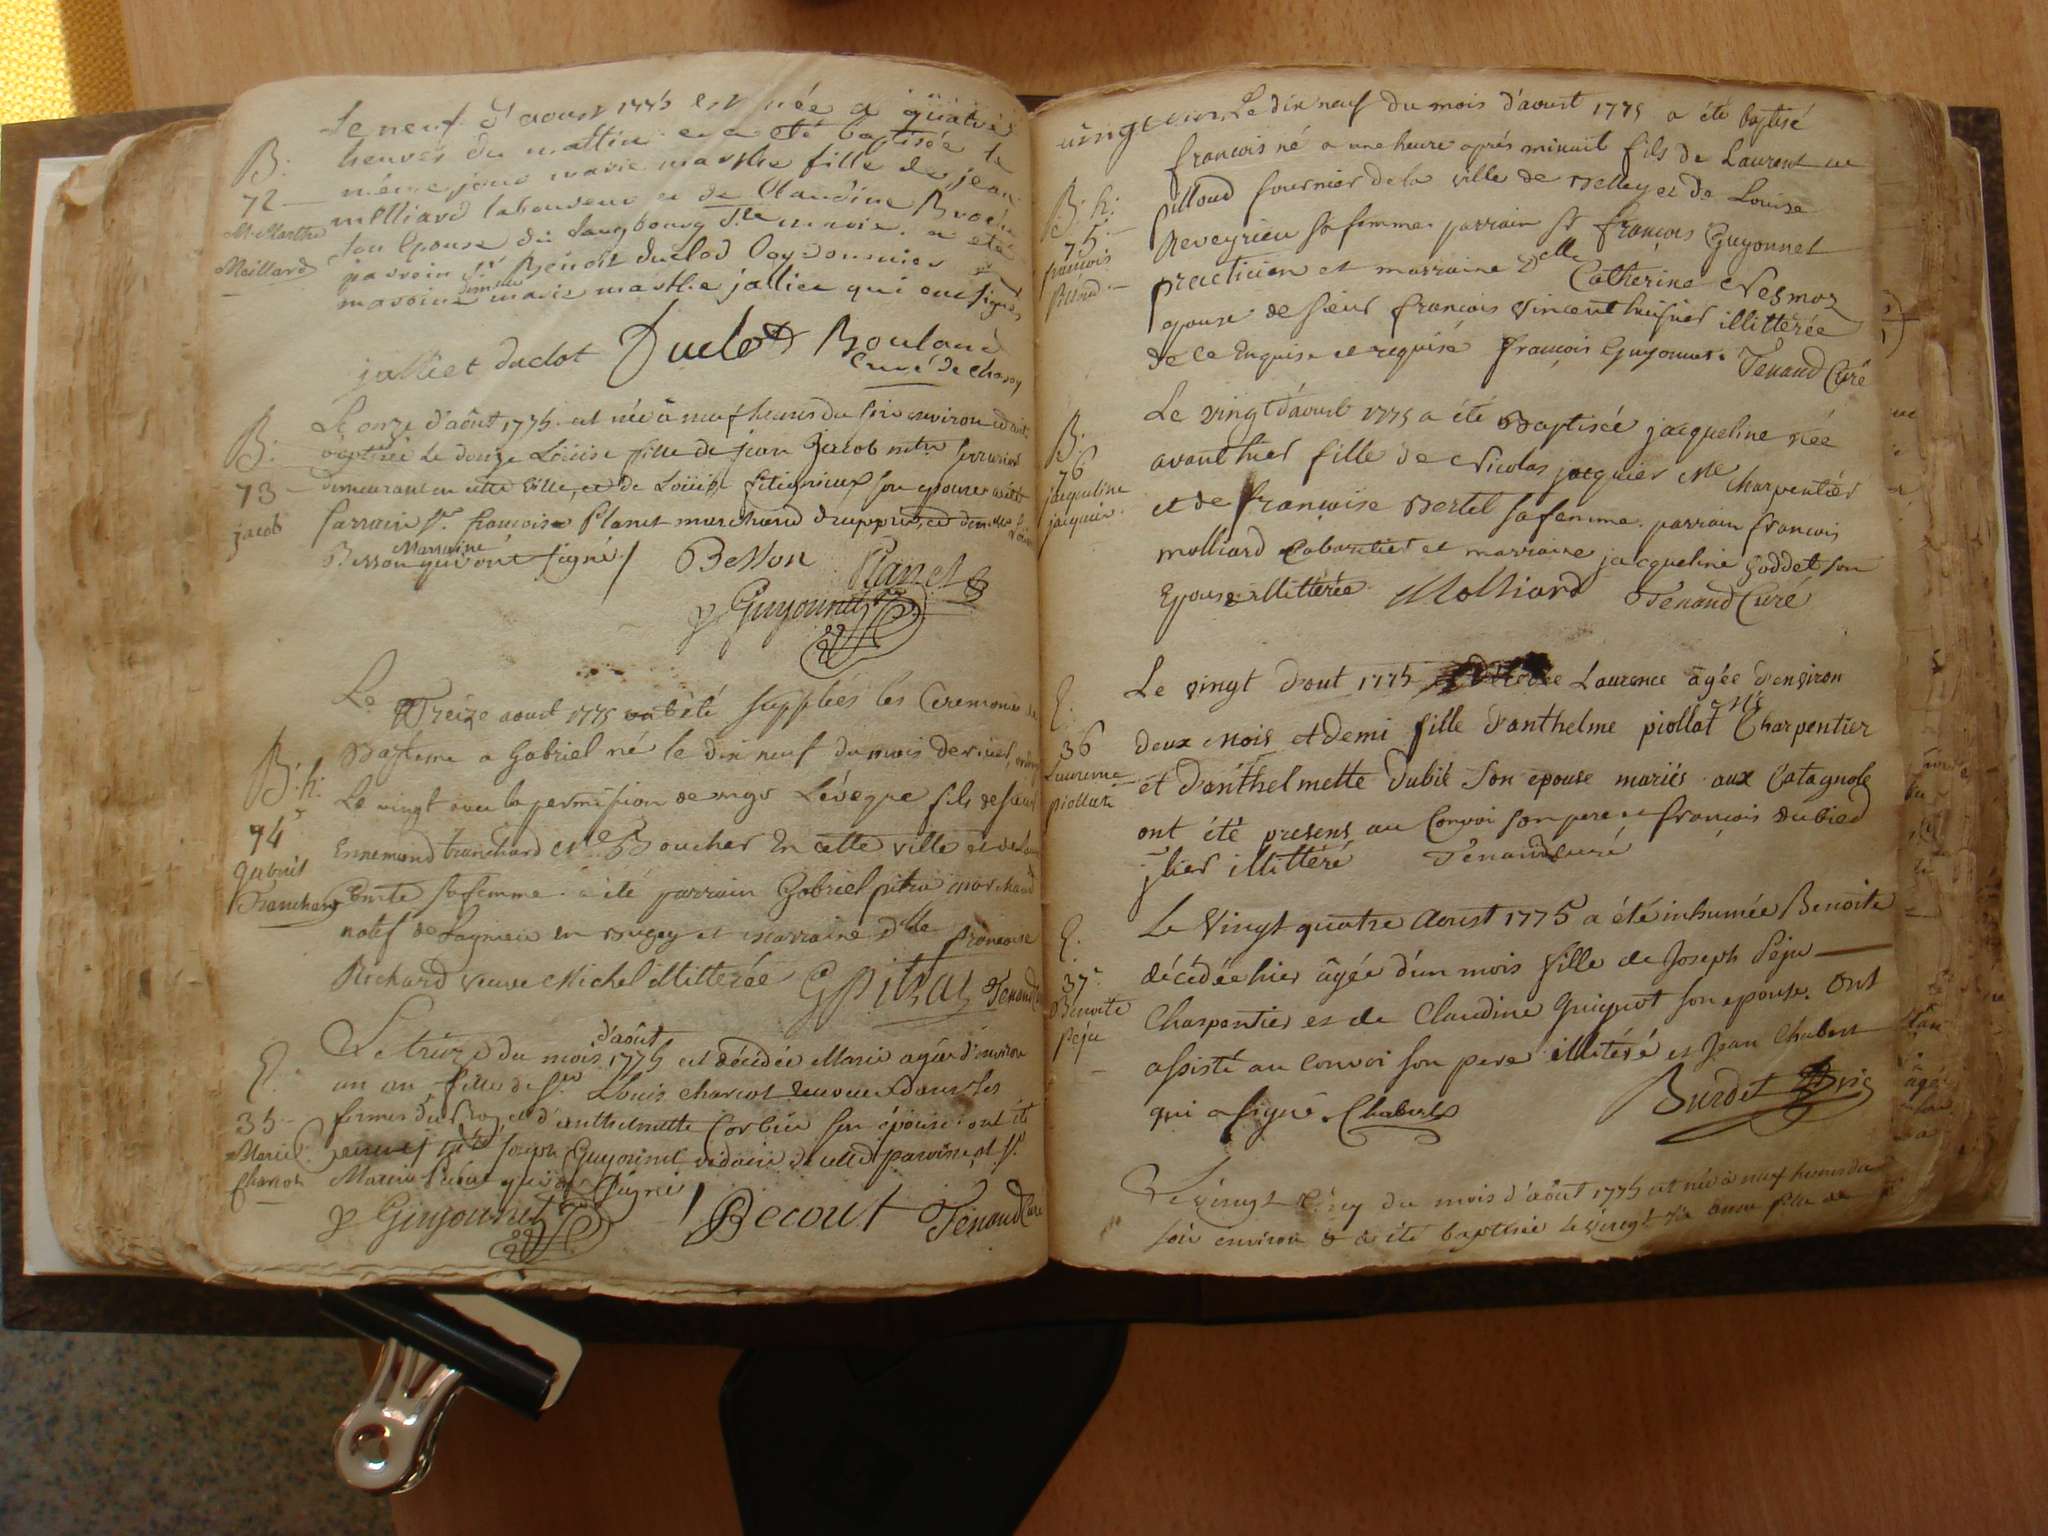 Le neuf d'aoust 1775 est née a quatre
B. heures du mattin et a eté baptisée le
72 même jour marie marthe fille de jean
M. Marthe molliard laboureur et de Claudine
Maillard son Epouse du faugbourg a eté
parrain Sr Benoit duclod
maraine demlle marie marthe jallier qui ont signés
jalliet duclot Duclot Bouland
Curé de
Le onze d'aôût 1775 est née à neuf heures du soir environ et a été
B. baptisée Le douze Loüise fille de jean Jacob mtre serrurier
73 demeurant en cette ville, et de Loüise son epouse a été
jacob parrain Sr. francoise Planet marchand drappier, et demlle
Besson Marraine qui ont signé / Besson Planet
Guyonnet
Le Treize aoust 1775 ont été suppléés les Ceremonies de
B. h. Bapteme a Gabriel né le dix neuf du mois dernier,
74 Le vingt avec la permission de mgr Lévêque fils de sieur
gabriel Ennemond tranchard Me Boucher En cette ville et de
Tranchard Comte sa femme a été parrain Gabriel pitra marchand
natif de Lagnieu en Bugey et marraine dlle francoise
Richard veuve Michel illitterée G Pitrat Tenand
Le treize du mois d'août 1775 est décédée Marie agée d'environ
E. un an fille de Sr. Louis charcot dans les
35 fermes du Roy, et d'anthelmette Corbier son épouse ont été
Marie Sr joseph Guyonnet vicaire de cette paroisse et Sr.
charcot Marin qui ont signé
Guyonnet / Becout Tenand Curé
Le dix neuf du mois d'aoust 1775 a été baptisé
francois né a une heure aprés minuit fils de Laurent
B. h. pilloud fournier de la ville de Belley et de Louise
75 Reveyrieu sa femme. parrain Sr francois Guyonnet
francois praticien et marraine delle Catherine Nesmoz
epouse de sieur francois vincent huissier illitterée
de ce Enquise et requise françois Guyonnet. Tenand Curé
Le vingt d'aoust 1775 a été Baptisée jacqueline née
B. avant hier fille de Nicolas jacquier Me charpentier
76 et de françoise Bertet sa femme. parrain francois
jacqueline molliard Cabaretier et marraine jacqueline goddet son
jacquier Epouse illitérée Molliard Tenand Curé
E. Le vingt d'out 1775 Laurence agée d'environ
36 deux mois et demi fille d'anthelme piollat Me Charpentier
Laurence et d'anthelmette dubié son epouse mariés aux Catagnole
piollat ont été presens au Convoi son pere et francois dubied
jllier illittéré Tenand curé
E. Le Vingt quatre Aoust 1775 a été inhumée Benoite
37 décédée hier âgée d'un mois fille de Joseph Peju
Benoite Charpentier et de Claudine Guignot son epouse. Ont
Peju assisté au Convoi son pere illitéré et Jean Chabert
qui a signé. Chabert Burdet
Le vingt cinq du mois d'août 1775 est née à neuf heures du
soir environ & a été baptisée le vingt six anne fille de